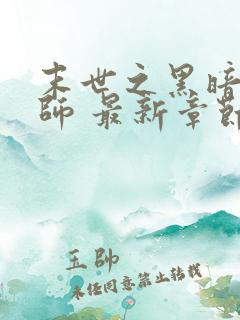 末世之黑暗
师 最新章節
玉帥
未经同意禁止转载